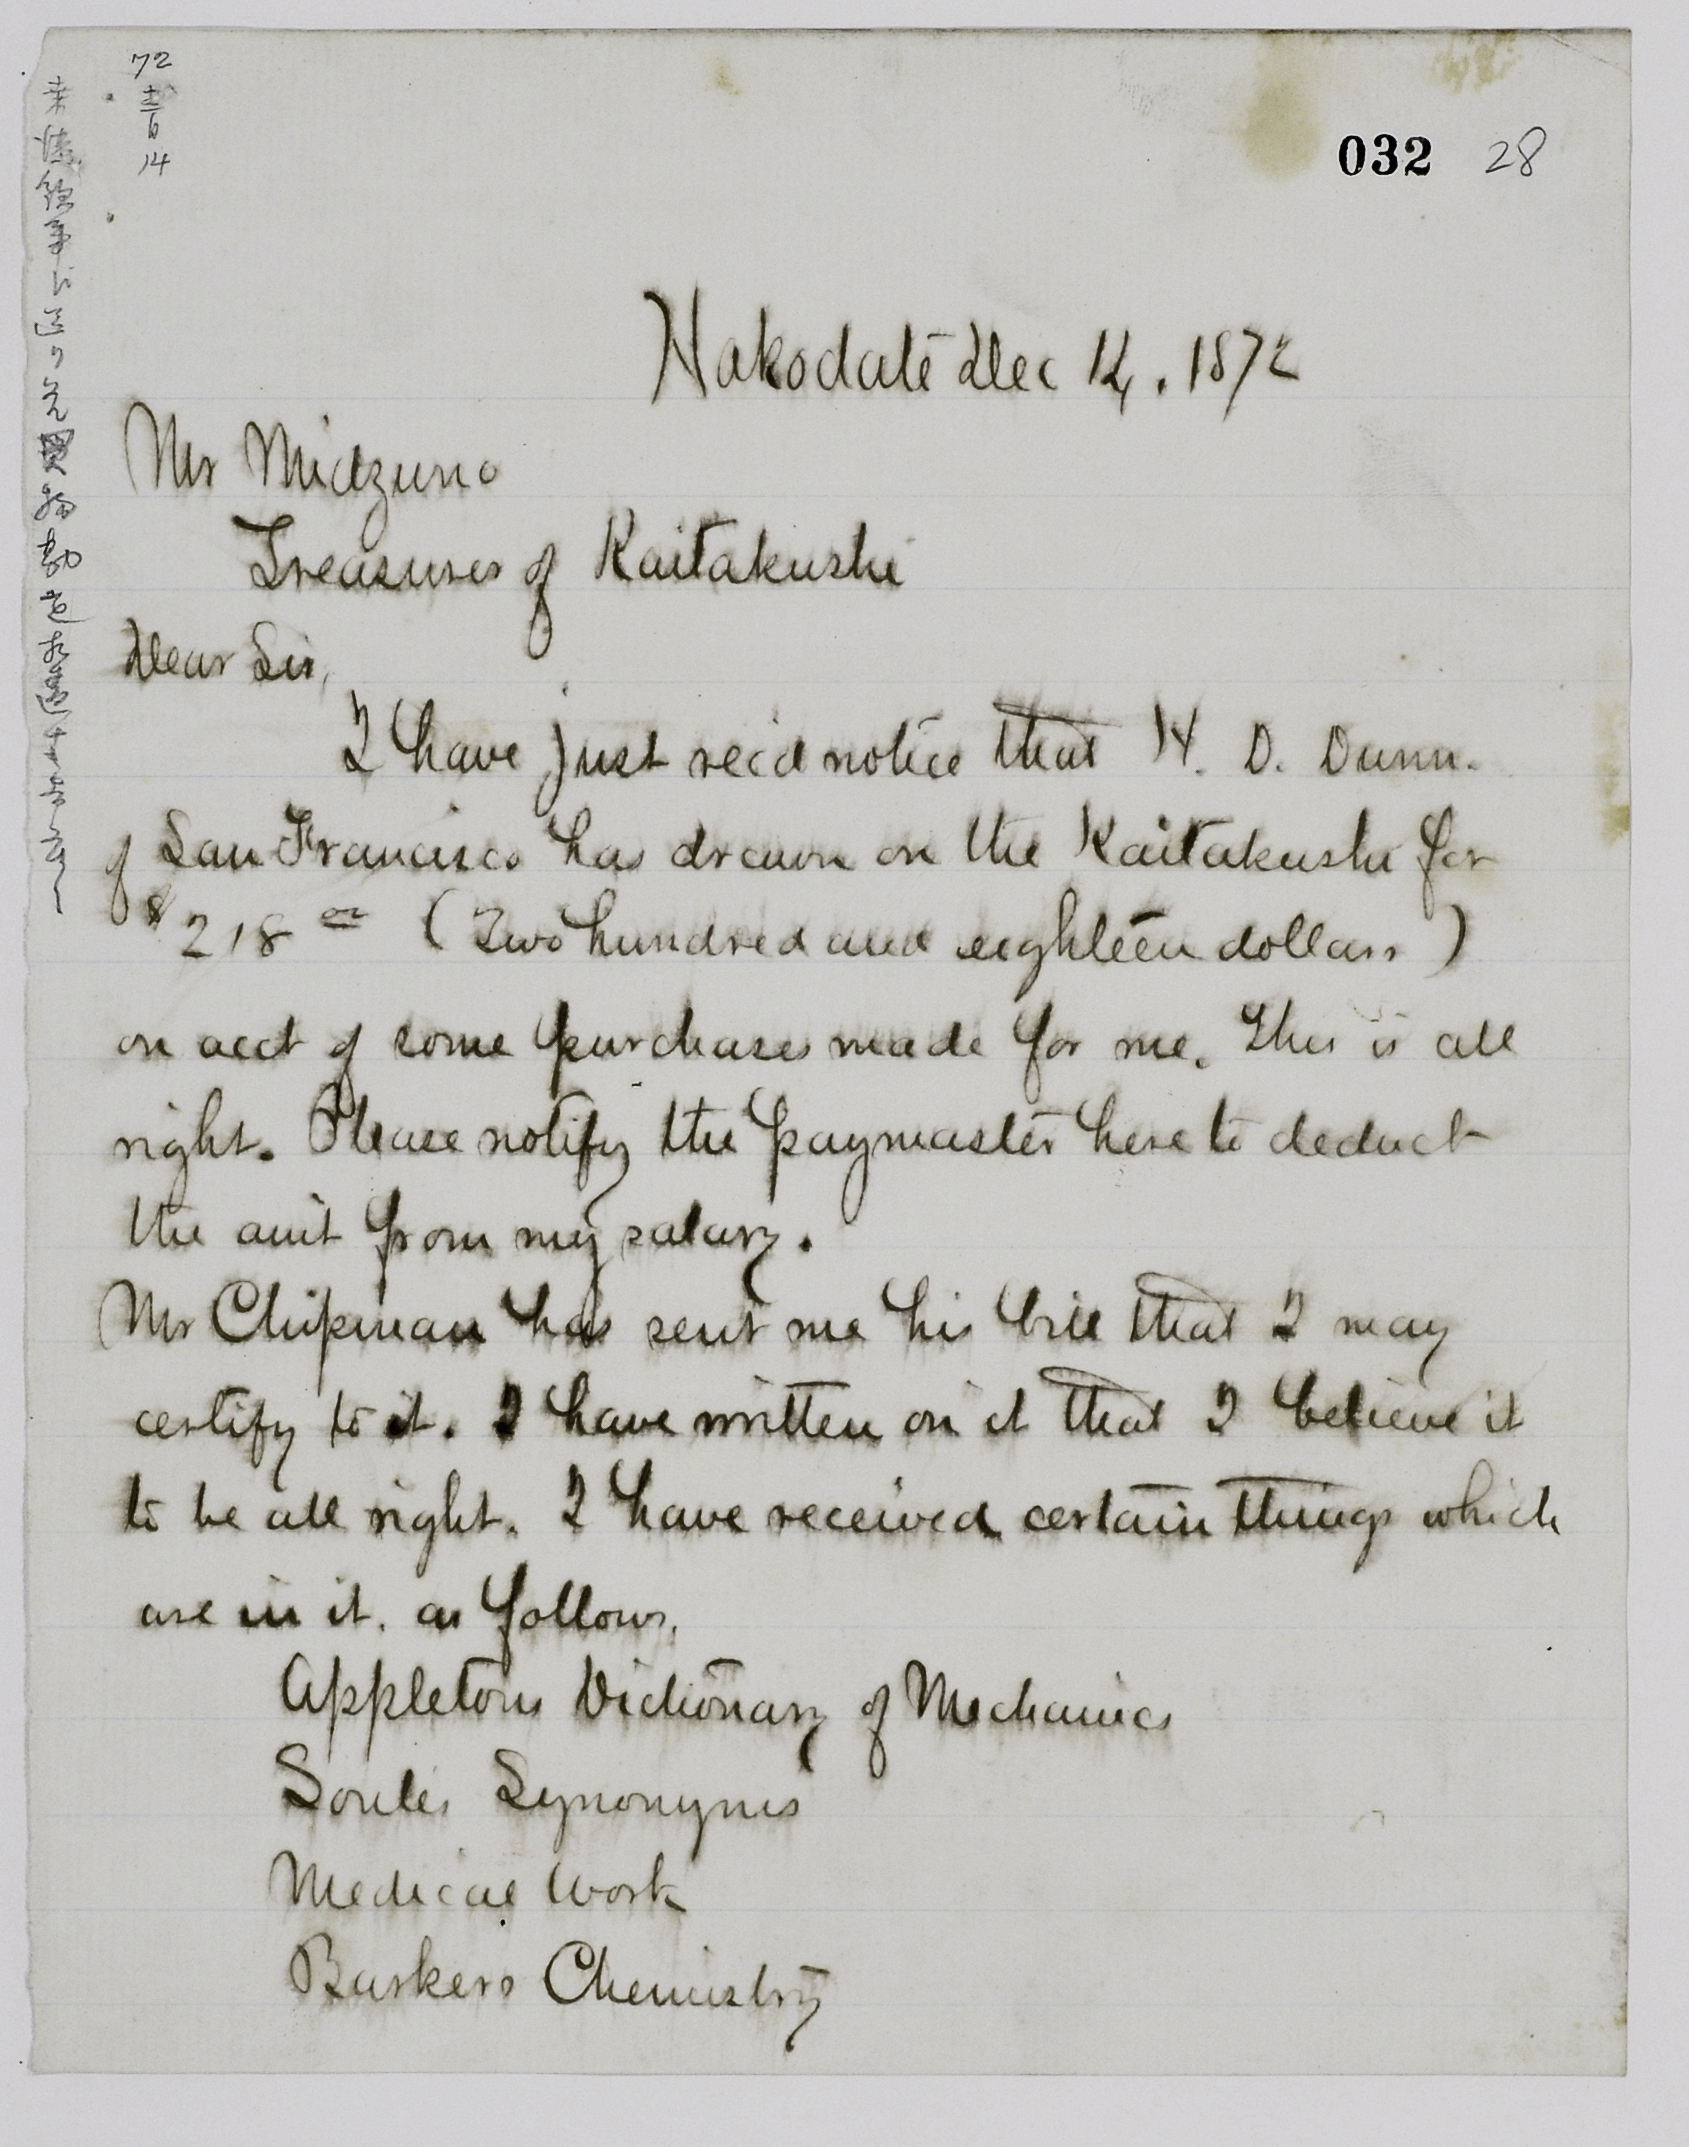 72
12/6
14
032 28
Hakodate Dec 14, 1872
Mr Midzuno
Treasurer of Kaitakushi
Dear Sir,
I have just rec'd notice that H. D. Dunn.
of San Francisco has drawn on the Kaitakushi for
$218 00 (Two hundred and eighteen dollars)
on acct of some purchases made for me. This is all
right. Please notify the paymaster here to deduct
the amt from my salary.
Mr Chipman has sent me his bill that I may
certify to it. I have written on it that I believe it
to be all right. I have received certain things which
are in it. as follows,
Appletons Dictionary of Mechanics
Soules Synonyms
Medical Work
Barkers Chemistry